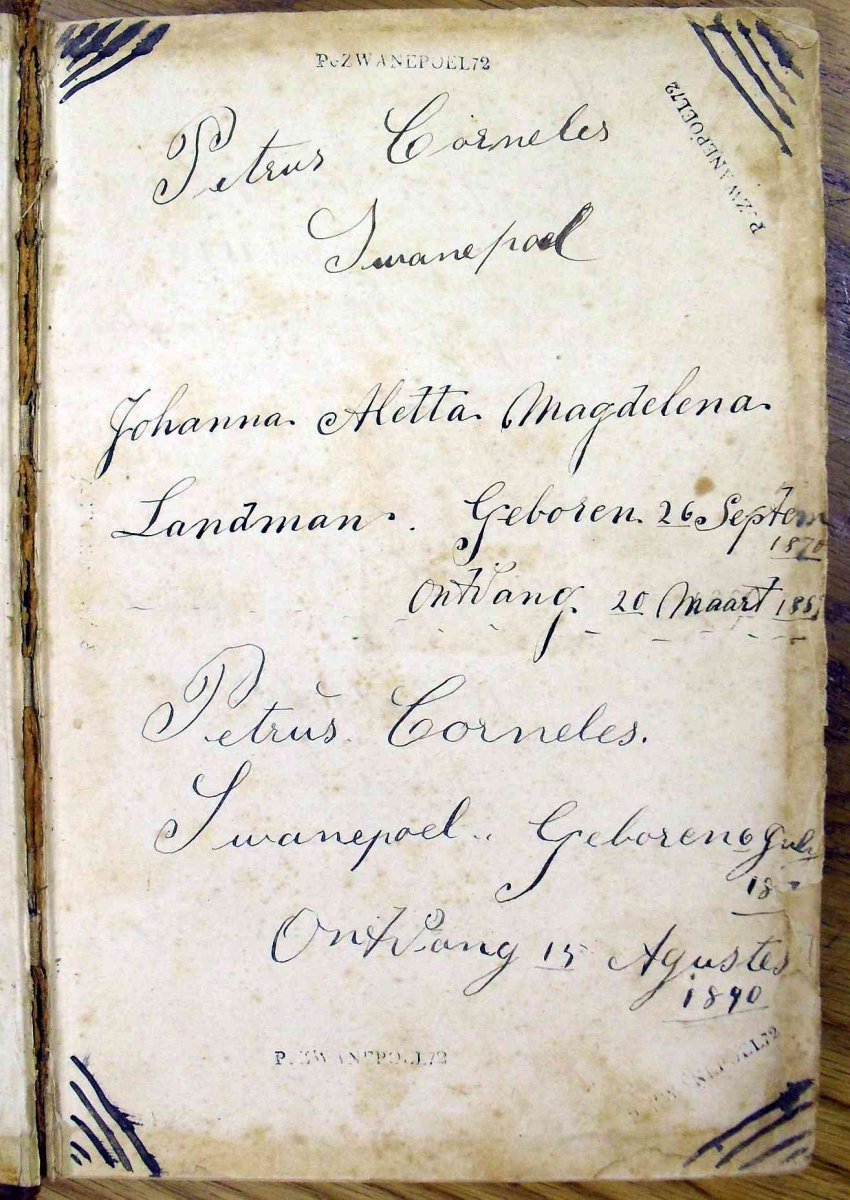 PCZWANEPOEL72
PCZWANEPOEL72
Petrus Corneles
Swanepoel
Johanna Aletta Magdelena
Landman. Geboren 26 Septem
1870
Ontvang 20 Maart
Petrus Corneles.
Swanepoel.. Geboren 6 July
18
Ontvang 15 Agustes
1890
PCZWANEPOEL72
PCZWANEPOEL72